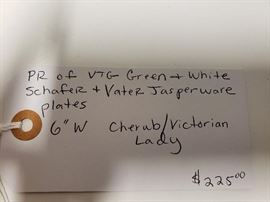 PR of VTG Green + White
Schafer + Vater Jasperware
plates
6" W Cherub/Victorian
Lady
$225.00